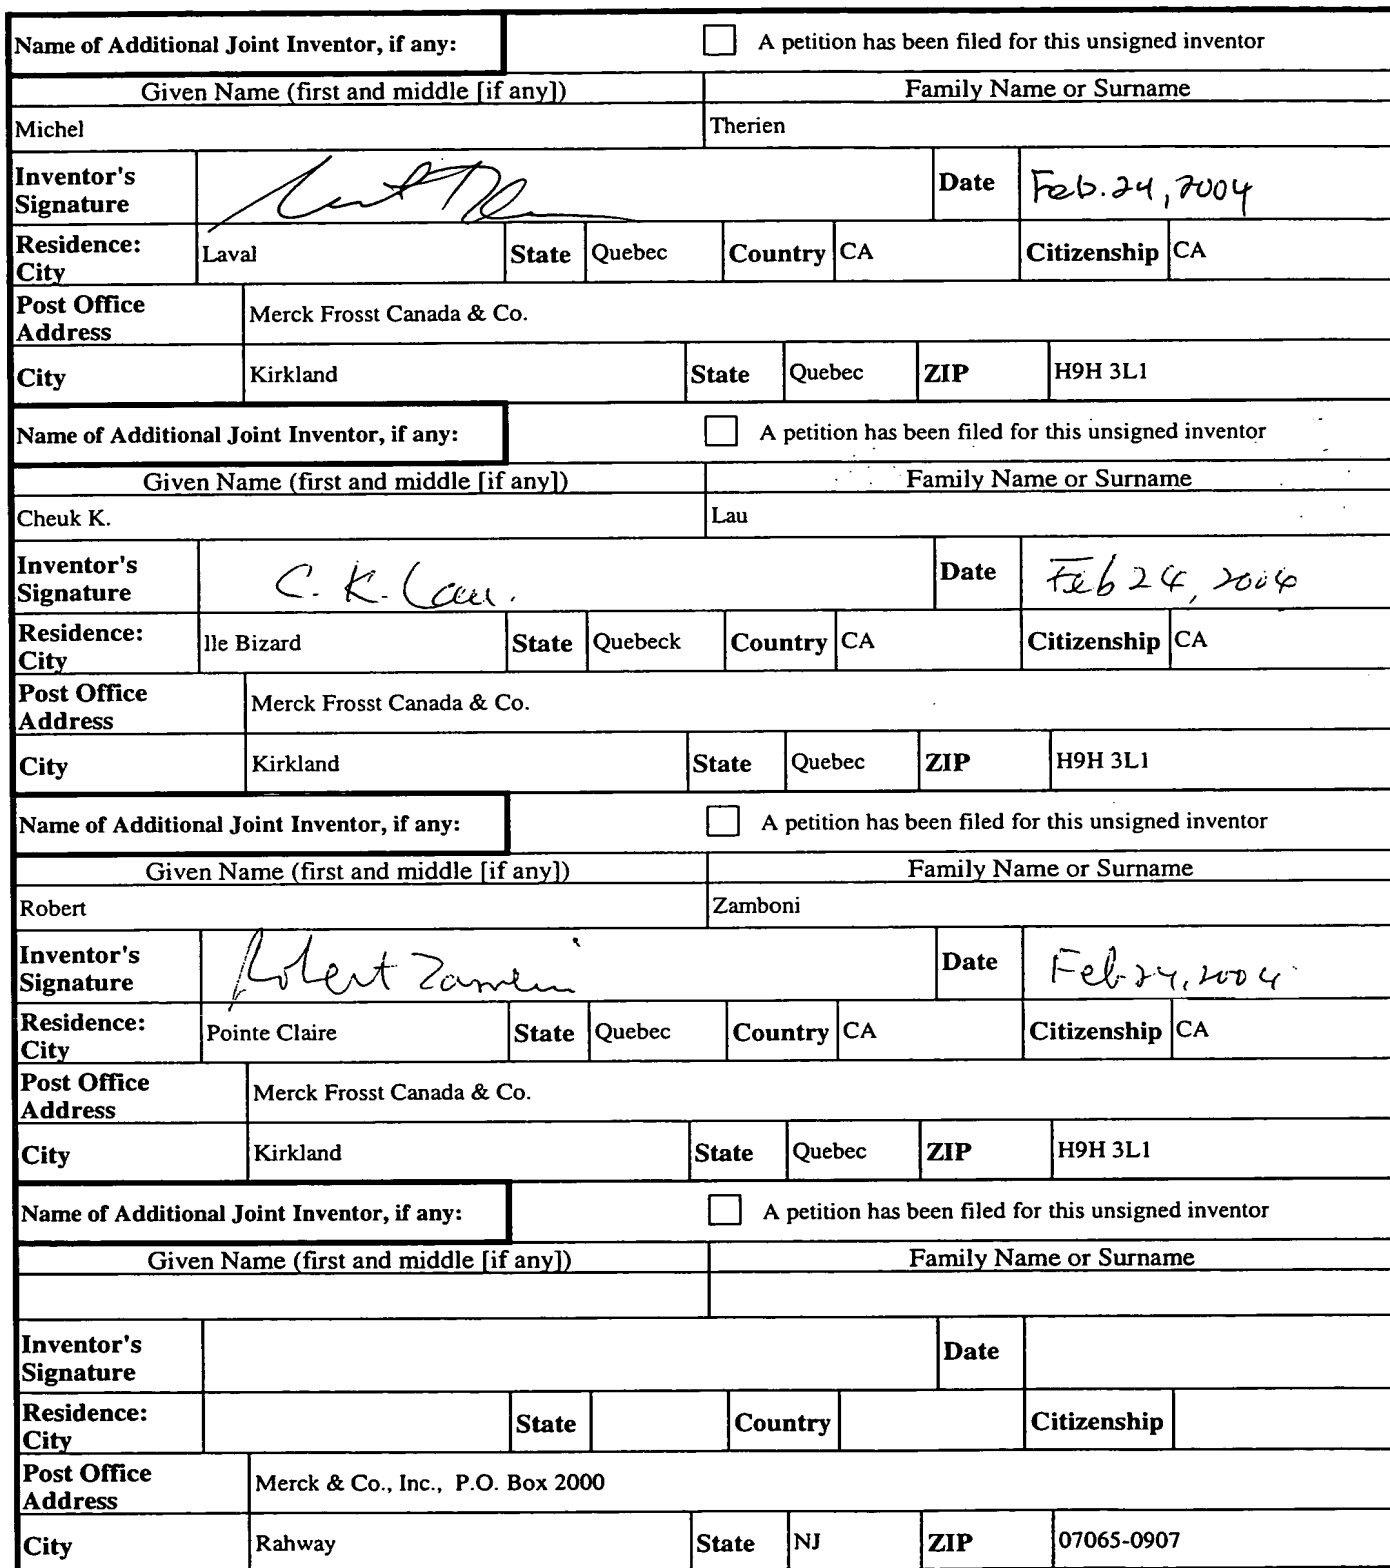 Name of Additional Joint Inventor, if any: A petition has been filed for this unsigned inventor
Given Name (first and middle [if any]) Family Name or Surname
Michel Therien
Inventor's Signature Date Feb. 24, 2004
Residence: City Laval State Quebec Country CA Citizenship CA
Post Office Address Merck Frosst Canada & Co.
City Kirkland State Quebec ZIP H9H 3L1
Name of Additional Joint Inventor, if any: A petition has been filed for this unsigned inventor
Given Name (first and middle [if any]) Family Name or Surname
Cheuk K. Lau
Inventor's Signature C. K. Lau. Date Feb 24, 2004
Residence: City Ile Bizard State Quebeck Country CA Citizenship CA
Post Office Address Merck Frosst Canada & Co.
City Kirkland State Quebec ZIP H9H 3L1
Name of Additional Joint Inventor, if any: A petition has been filed for this unsigned inventor
Given Name (first and middle [if any]) Family Name or Surname
Robert Zamboni
Inventor's Signature Robert Zamboni Date Feb 24, 2004
Residence: City Pointe Claire State Quebec Country CA Citizenship CA
Post Office Address Merck Frosst Canada & Co.
City Kirkland State Quebec ZIP H9H 3L1
Name of Additional Joint Inventor, if any: A petition has been filed for this unsigned inventor
Given Name (first and middle [if any]) Family Name or Surname
Inventor's Signature Date
Residence: City State Country Citizenship
Post Office Address Merck & Co., Inc., P.O. Box 2000
City Rahway State NJ ZIP 07065-0907